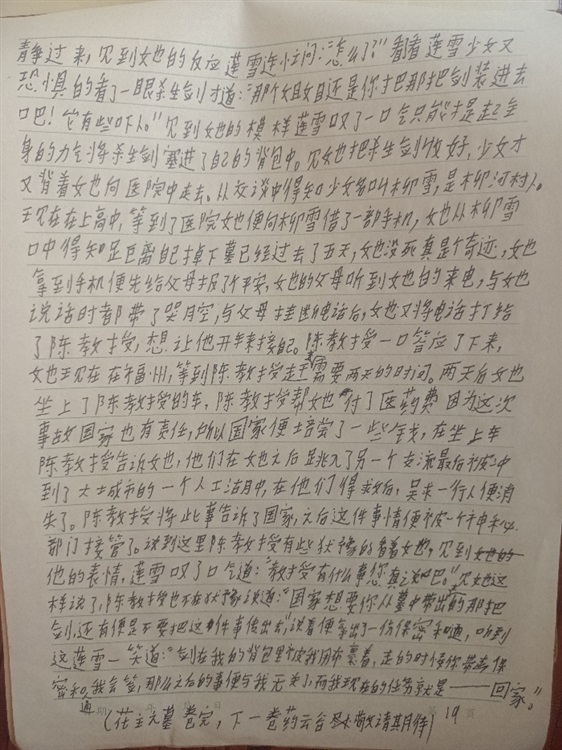 静过来，见到她的反应莲雪连忙问：“怎么了？”看看莲雪少女又
恐惧的看了一眼杀生剑才道：“那个姐姐还是你把那把剑装进去
吧！它有些吓人。”见到她的模样莲雪叹了一口气只能提起全
身的力气将杀生剑塞进了自己的背包中。见她把杀生剑收好，少女才
又背着她向医院中走去。从交谈中得知少女名叫柳雪，是柳河村人。
现在在上高中，等到了医院她便向柳雪借了一部手机，她从柳雪
口中得知距离自己掉下墓已经过去了五天，她没死真是个奇迹，她
拿到手机便先给父母报了个平安，她的父母听到她的来电，与她
说话时都带了哭腔，与父母挂断电话后，她又将电话打给
了陈教授，想让他开车来接自己。陈教授一口答应了下来，
她现在在福州，等到陈教授赶来需要两天的时间。两天后她
坐上了陈教授的车，陈教授帮她付了医药费因为这次
事故国家也有责任，所以国家便赔尝了一些钱，在坐上车
陈教授告诉她，他们在她之后跳入了另一个支流最后被冲
到了大土城市的一个人工湖中，在他们得救后，吴未一行人便消
失了。陈教授将此事告诉了国家，之后这件事情便被一个神秘
部门接管了。说到这里陈教授有些犹豫的看着她，见到
他的表情，莲雪叹了口气道：“教授有什么事您直说吧。”见她这
样说了，陈教授也不在犹豫说道：“国家想要你从墓中带出的那把
剑，还有便是不要把这件事传出去”说着便拿出了一份保密和通，听到
这莲雪一笑道：“剑在我的背包里被我用布裹着，走的时候你带去保
密和通我会签，那么之后的事便与我无关了而我现在的任务就是——回家。”
（花主元墓卷完，下一卷药云谷敬请其月待） 19